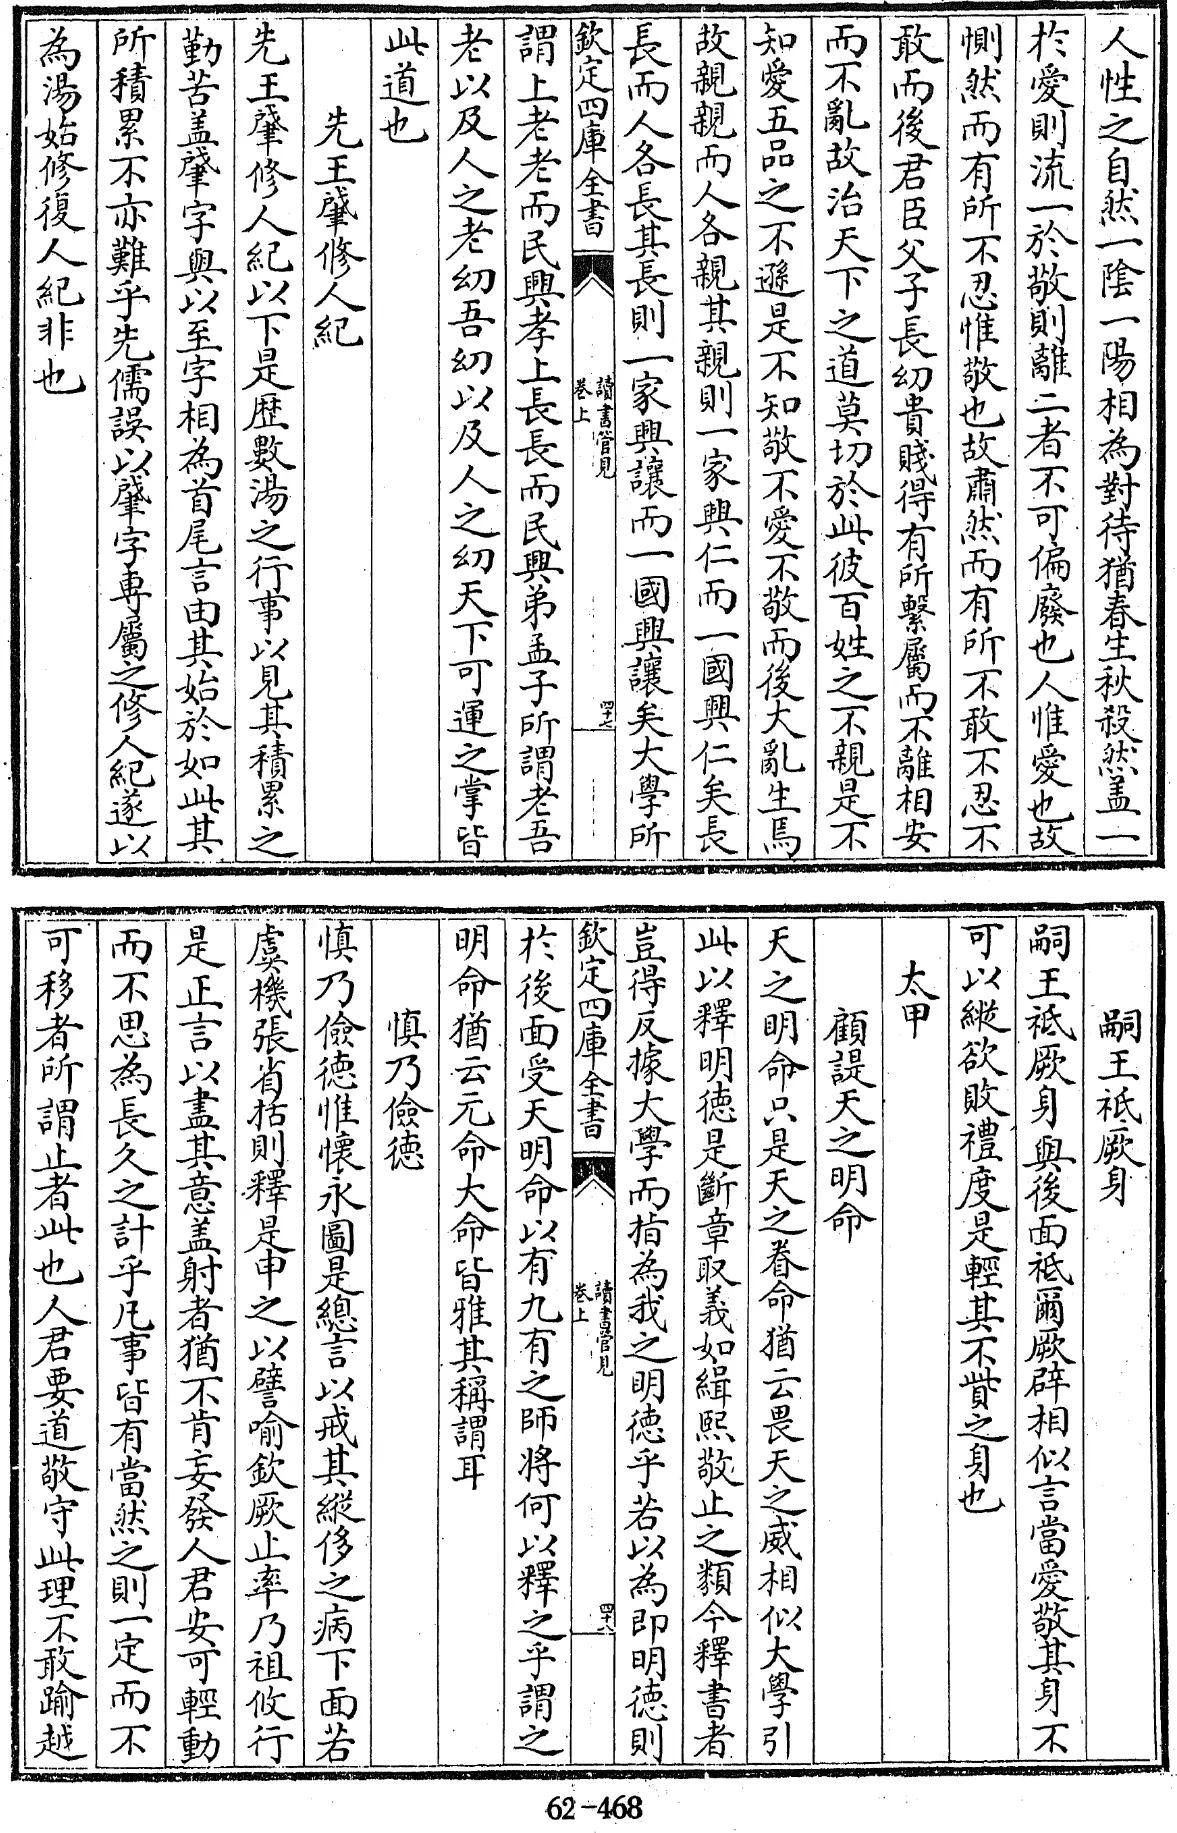 人性之自然一陰一陽相為對待猶春生秋殺然盖一
於愛則流一於敬則離二者不可偏廢也人惟愛也故
惻然而有所不忍惟敬也故肅然而有所不敢不忍不
敢而後君臣父子長幼貴賤得有所繫屬而不離相安
而不亂故治天下之道莫切於此彼百姓之不親是不
知愛五品之不遜是不知敬不愛不敬而後大亂生焉
故親親而人各親其親則一家興仁而一國興仁矣長
長而人各長其長則一家興讓而一國興讓矣大學所
欽定四庫全書
讀書管見
卷上
四十七
謂上老老而民興孝上長長而民興弟孟子所謂老吾
老以及人之老幼吾幼以及人之幼天下可運之掌皆
此道也
先王肇修人紀
先王肇修人紀以下是歴數湯之行事以見其積累之
勤苦盖肇字與以至字相為首尾言由其始於如此其
所積累不亦難乎先儒誤以肇字專屬之修人紀遂以
為湯始修復人紀非也
嗣王祗厥身
嗣王祗厥身與後面祗爾厥辟相似言當愛敬其身不
可以縱欲敗禮度是輕其不貲之身也
太甲
顧諟天之明命
天之明命只是天之眷命猶云畏天之威相似大學引
此以釋明徳是斷章取義如緝熙敬止之類今釋書者
豈得反據大學而指為我之明徳乎若以為即明徳則
欽定四庫全書
讀書管見
卷上
四十八
於後面受天明命以有九有之師將何以釋之乎謂之
明命猶云元命大命皆雅其稱謂耳
慎乃儉徳
慎乃儉徳惟懷永圖是總言以戒其縱侈之病下面若
虞機張省括則釋是申之以譬喻欽厥止率乃祖攸行
是正言以盡其意盖射者猶不肯妄發人君安可輕動
而不思為長久之計乎凡事皆有當然之則一定而不
可移者所謂止者此也人君要道敬守此理不敢踰越
62-468